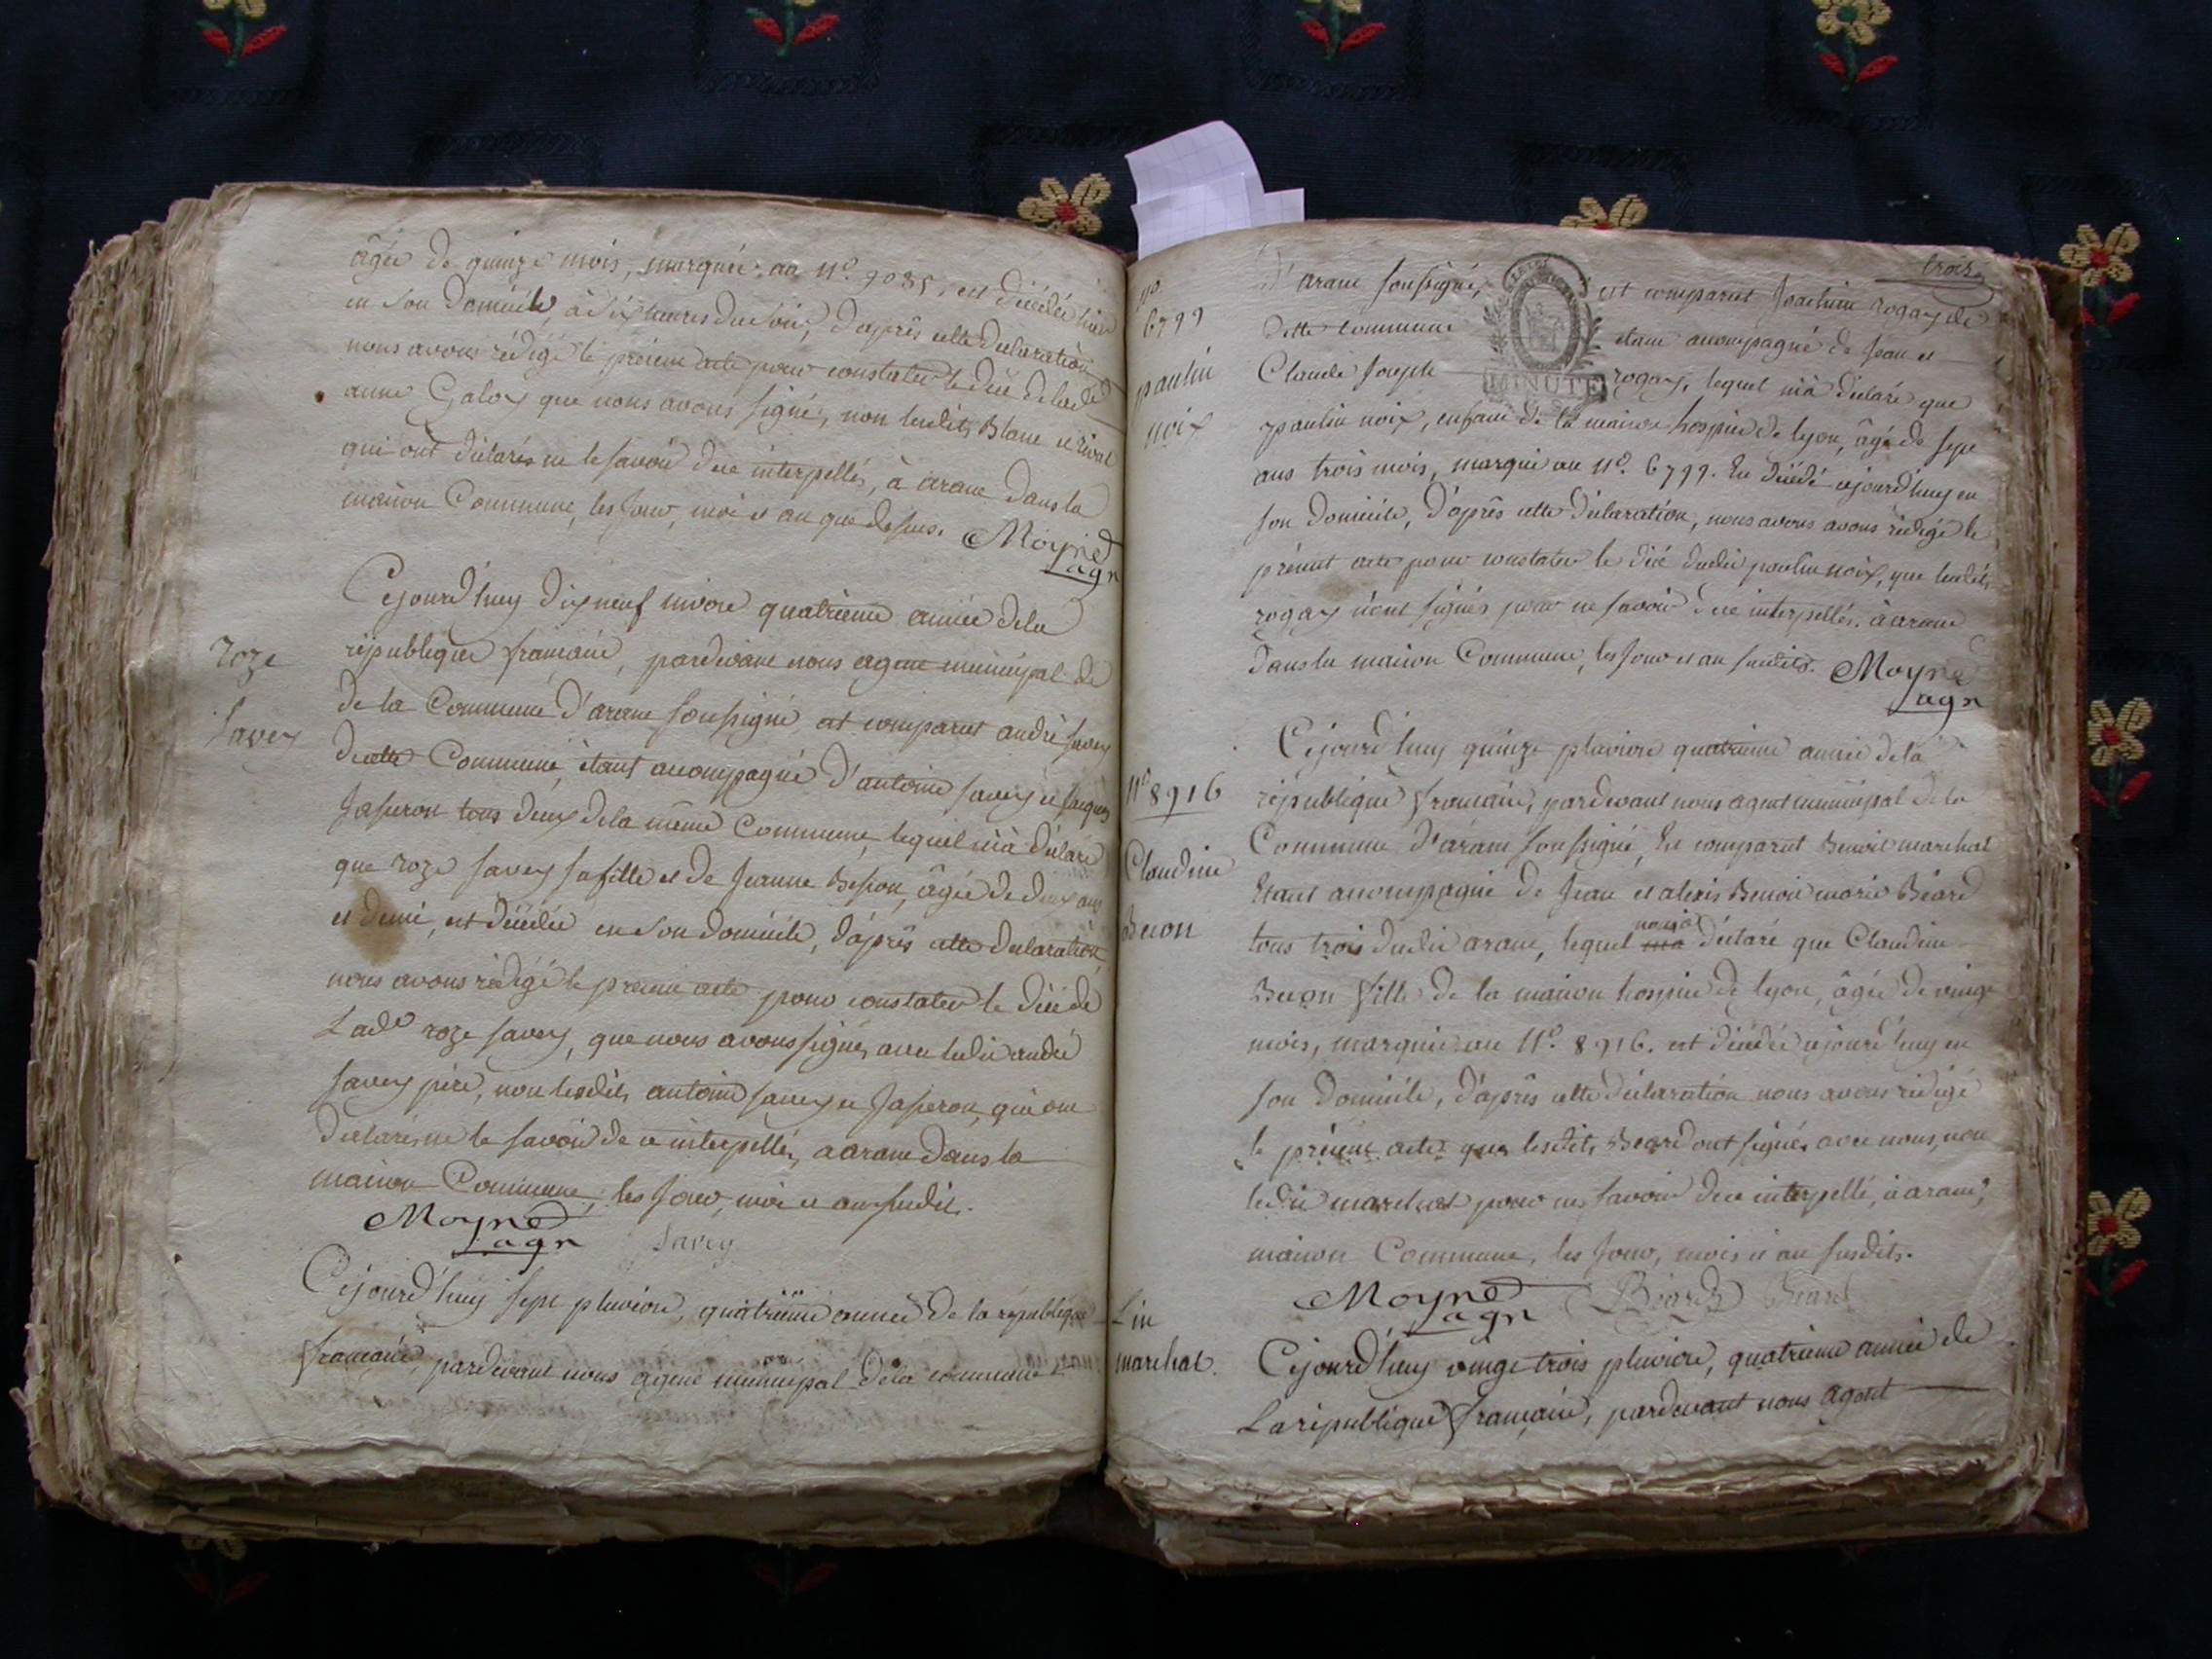 âgée de quinze mois, marquée au N.o 9085, est décédée hier
en son domicile, à six heures du soir, d'après cette declaration
nous avons rédigé le présent acte pour constater le décè de lade
anne Galox que nous avons signé, non lesdits Blanc et rival
qui ont déclarés ne le savoir de ce interpellés, à arane dans la
maison Commune, les Jour, mois et an que dessus. Moyne
agn
roze
savey
Cejourd'huy dix neuf nivose quatrieme année de la
république francaise, pardevant nous agent municipal de
de la Commune d'arane soussigné, est comparut andré savey
de cette Commune, étant accompagné d'antoine savey et jacques
Jaseron tous deux de la même Commune, lequel m'à déclaré
que roze savey sa fille et de Jeanne Besson, âgée de deux ans
et demi, est décédée en son domicile, d'après cette declaration
nous avons rédigé le present acte pour constater le décè de
Lade roze savey, que nous avons signé, avec ledit andré
savey père, non lesdits antoine savey et Jaseron, qui ont
declarés ne le savoir de ce interpellés, a arane dans la
maison Commune, les Jour, mois et an susdits.
Moyne
agn savey
Cejourd'huy sept pluviose, quatrieme année de la république
francaise, pardevant nous agent municipal de la commune
trois
No.
6799
paulin
noix
d'arane soussigné, est comparut Joachim rogax de
cette commune étant accompagné de Jean et
Claude Joseph rogax, lequel m'à declaré que
MINUTE
paulin noix, enfant de la maison hospice de lyon, âgé de sept
ans trois mois, marqué au N.o 6799. Est décédé cejourd'huy en
son domicile, d'après cette declaration, nous avons avons rédigé le
présent acte pour constater le décè dudit paulin noix, que lesdits
rogax n'ont signés pour ne savoir de ce interpellés. à arane
dans la maison Commune, les Jour et an susdits. Moyne
agn
No 8916
Claudine
Bucon
Cejourd'huy quinze pluviose quatrieme année de la
république francaise, pardevant nous agent municipal de la
Commune d'arane soussigné, Est comparut Benoit marchat
Etant accompagné de Jean et alexis Benoit marie Béard
tous trois dudit arane, lequel nous à déclaré que Claudine
Bucon fille de la maison hospice de lyon, âgée de vingt
mois, marquée au N.o 8916. est décédée cejourd'huy en
son domicile, d'après cette declaration nous avons rédigé
le présent acte que lesdits Beard ont signés avec nous, non
ledit marchat pour ne savoir de ce interpellé, à arane,
maison Commune, les Jour, mois et an susdits.
Moyne Béard Béard
agn
Lin
marchat.
Cejourd'huy vingt trois pluviose, quatrieme année de
La république francaise, pardevant nous agent